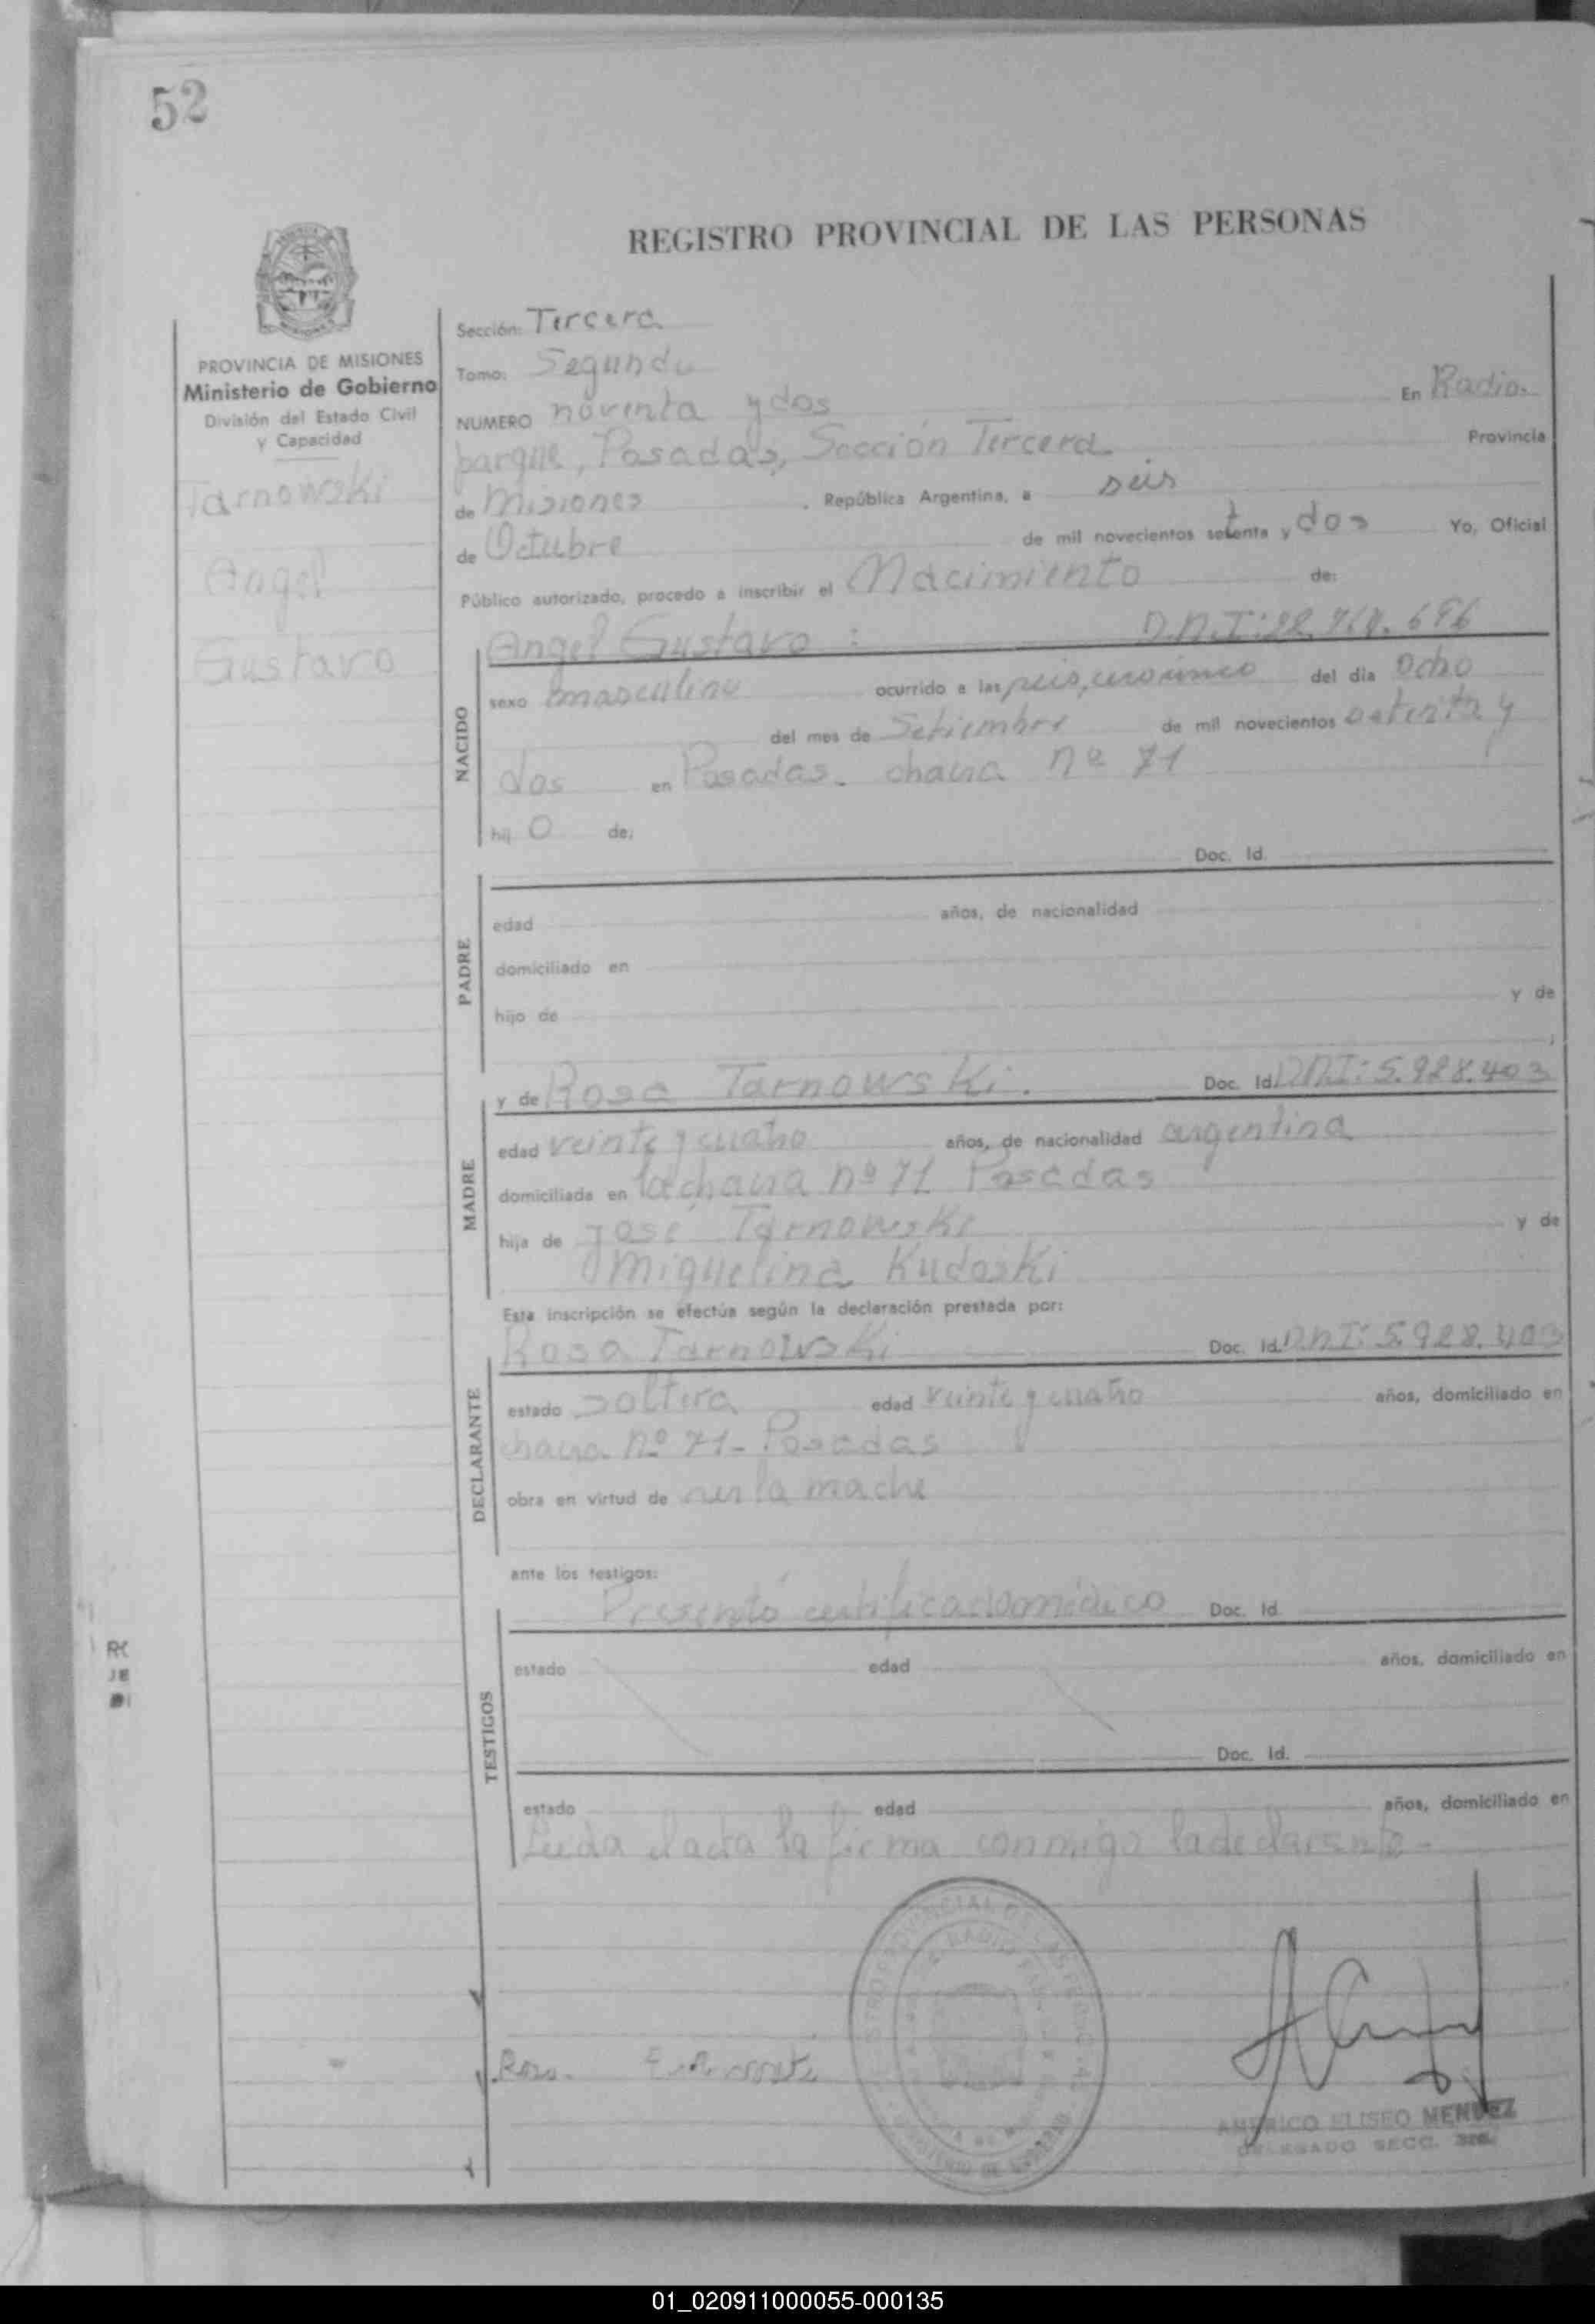 52
REGISTRO PROVINCIAL DE LAS PERSONAS
PROVINCIA DE MISIONES
Ministerio de Gobierno
División del Estado Civil
y Capacidad
Tarnowski
Angel
Gustavo
Sección: Tercera
Tomo: Segundo
NUMERO noventa y dos En Radio
parque, Posadas, Sección Tercera Provincia
de Misiones, República Argentina, a seis
de Octubre de mil novecientos setenta y dos Yo, Oficial
Público autorizado, procedo a inscribir el Nacimiento de:
NACIDO
Angel Gustavo : D.N.I:
sexo masculino ocurrido a las seis, cero cinco del día ocho
del mes de Setiembre de mil novecientos setenta y
dos en Posadas - chacra nº 71
hij o de:
Doc. Id.
PADRE
edad años, de nacionalidad
domiciliado en
hijo de y de
MADRE
y de Rosa Tarnowski. Doc. Id. DNI: 5.928.403
edad veinte y cuatro años, de nacionalidad argentina
domiciliada en la chacra nº 71 Posadas
hija de José Tarnowski y de
Miguelina Kudoski
Esta inscripción se efectúa según la declaración prestada por:
DECLARANTE
Rosa Tarnowski Doc. Id. DNI: 5.928.403
estado soltera edad veinte y cuatro años, domiciliado en
chacra nº 71 - Posadas
obra en virtud de ser la madre
ante los testigos:
TESTIGOS
Presentó certificado médico Doc. Id.
estado edad años, domiciliado en
Doc. Id.
estado edad años, domiciliado en
Leida el acta la firma conmigo la declarante -
Rosa
AMERICO ELISEO MENDEZ
DELEGADO SECC. 3ra.
01_020911000055-000135